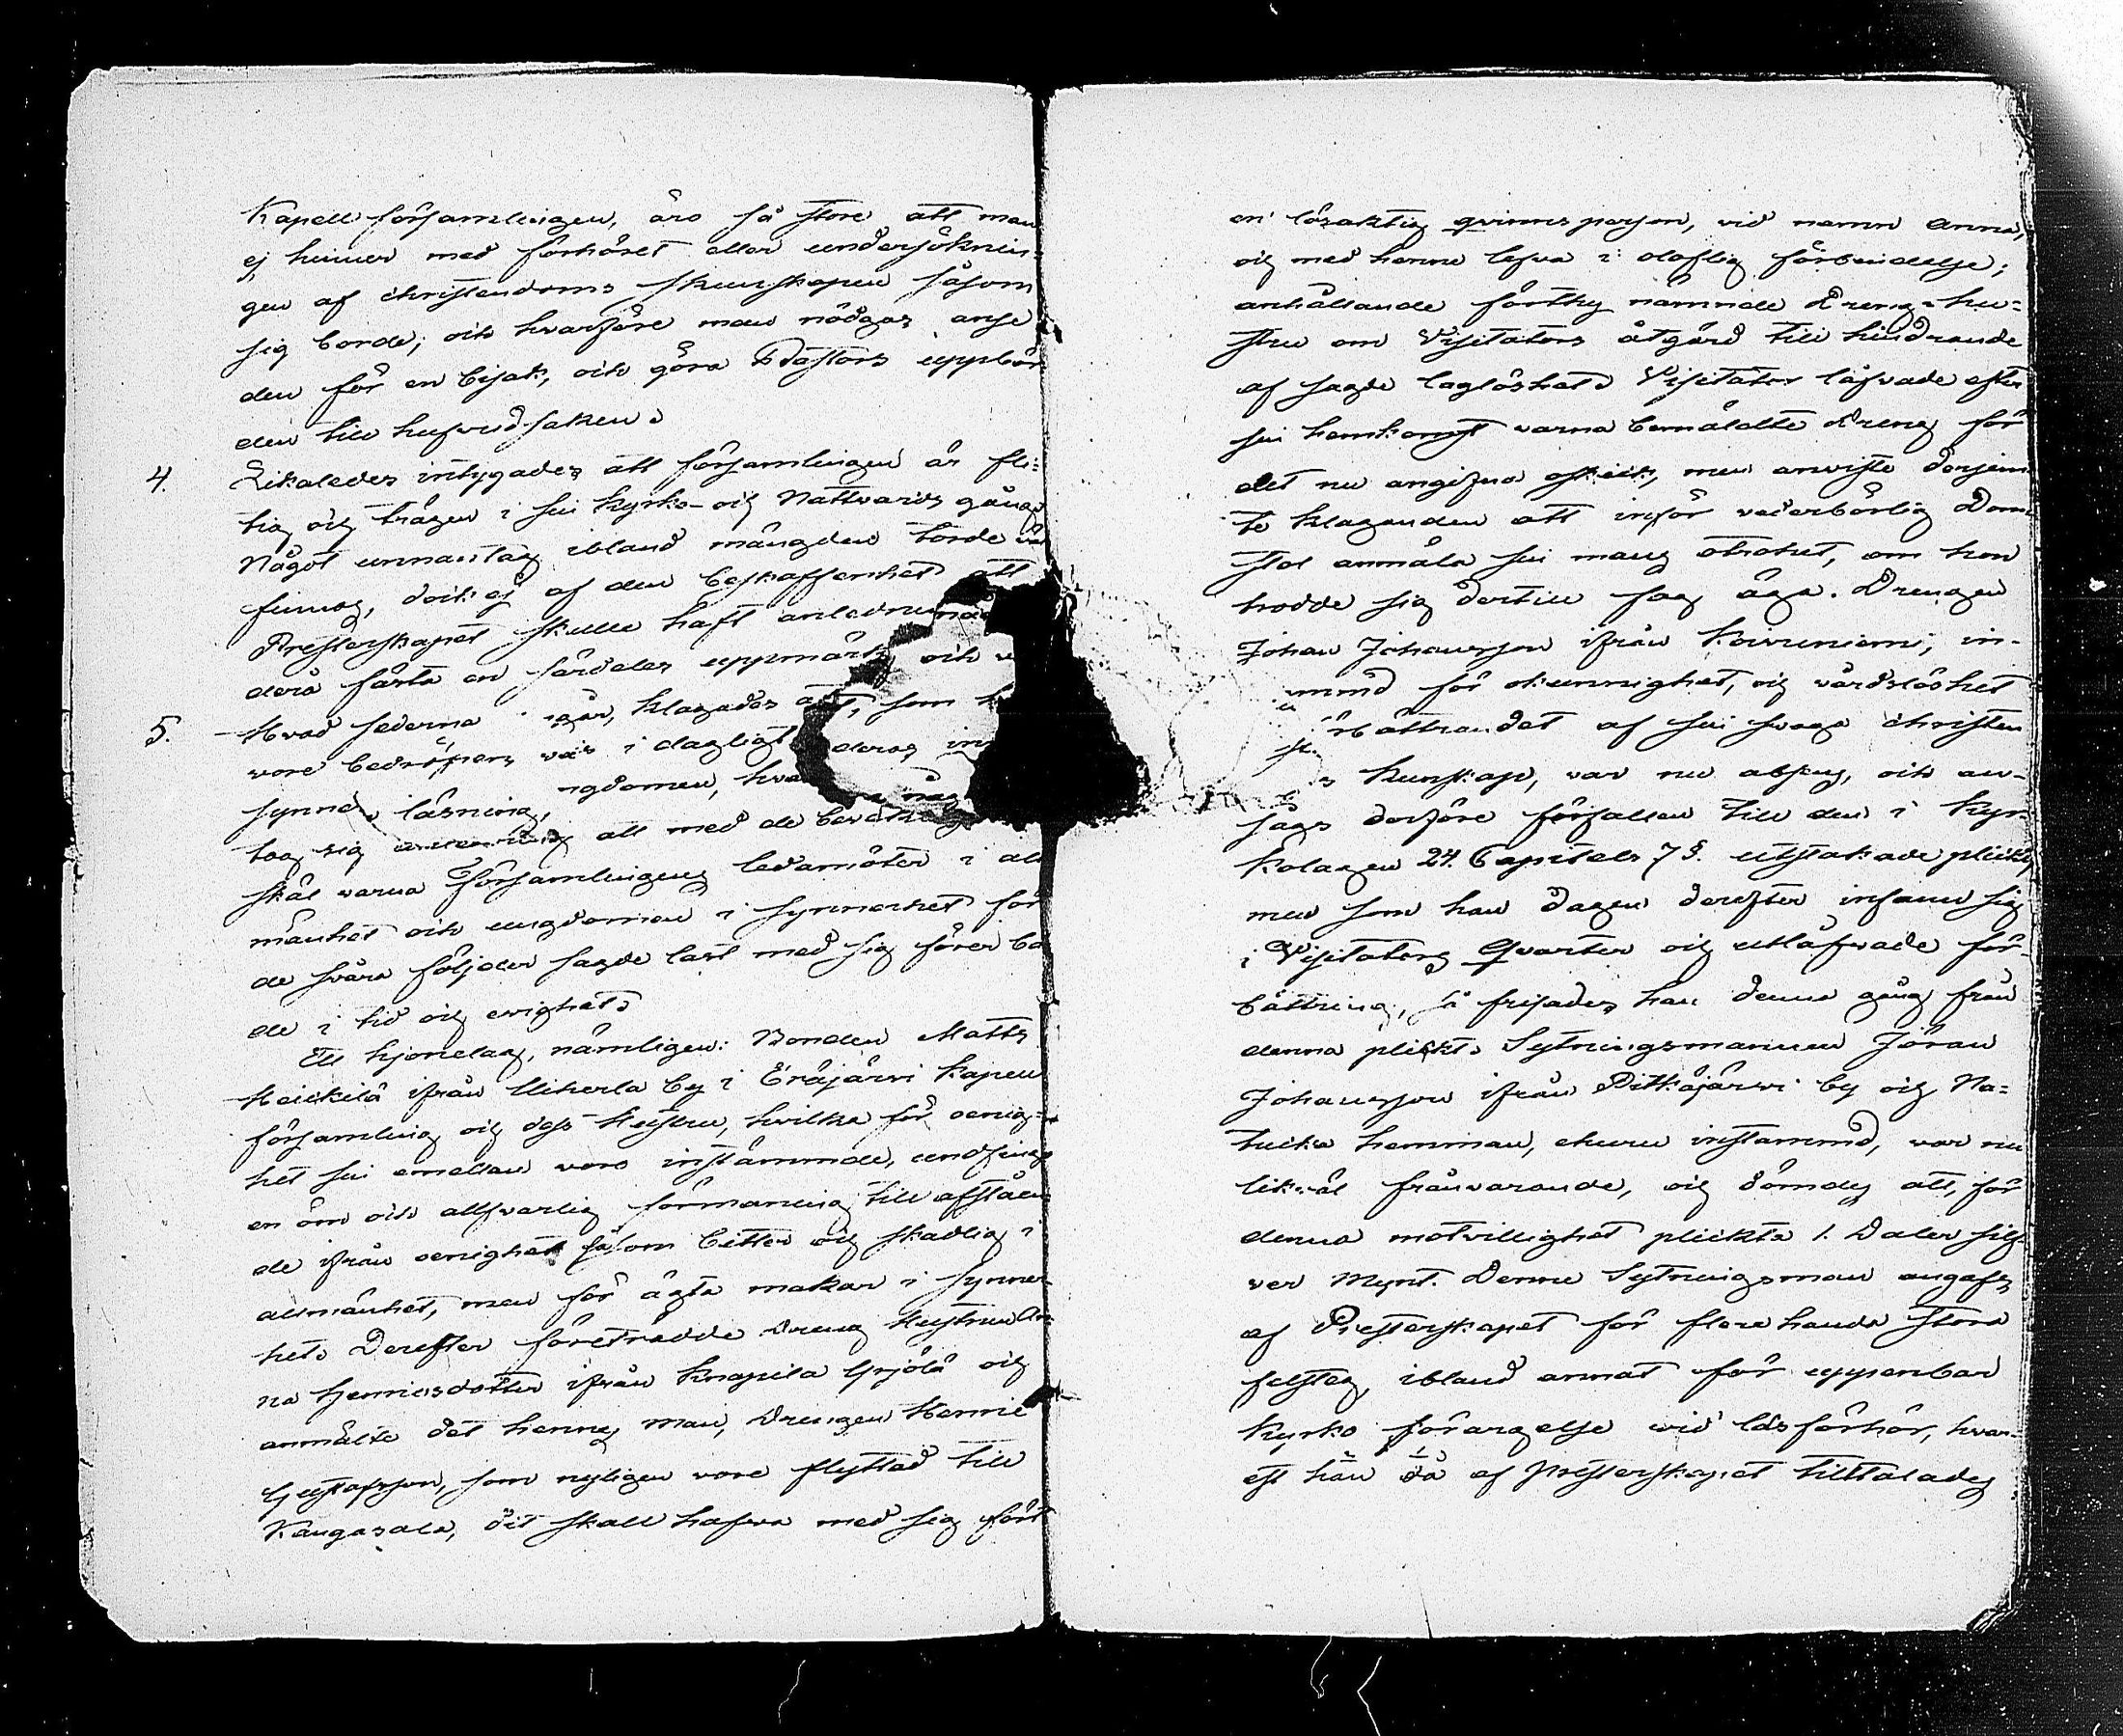 Kapell församlingen, äro så store att man
ej hinner med förhöret eller undersöknin-
gen af christendoms kunskapen såsom
sig borde; och hvarföre man nödgas anse
den för en bisak, och göra Pastors uppbör
den till hufvudsaken.
4. Likaledes intygades att församlingen är fli-
tig och trägen i sin kyrko- och Nattvards gång
Något unnantag ibland mängden torde
finnas, dock ej af den beskaffenhet att
Presterskapet skulle haft anledning
derå fästa en särdeles uppmärk och
5. Hvad sederna klagades att, som
vore bedröfven, var i dagligt
synnd, läsning, ngdomen,
tog sig att med de
skäl varna Församlingens ledamöter i all
mänhet och ungdomen i synnerhet för
de svåra följder sagde last med sig förer bå
de i tid och evighet.
Ett hjonelag, nämligen: Bonden Matts
Heickilä ifrån Uiherla by i Eräjärvi Kapell
församling och dess Hustru, hvilka för oenig-
het sin emellan voro instämmde, undfingo
en öm och allfvarlig förmaning till afståen
de ifrån oenighet såsom bitter och skadlig i
allmänhet, men för äkta makar i synner
het. Derefter företrädde Dreng Hustrun An-
na Henricsdotter ifrån Knapila och
anmälte det hennes man, Drengen Henric
Gustafsson, som nyligen vore flyttad till
Kangasala, dit skall hafva med sig fört
en lösaktig qvinnsperson, vid namn Anna,
och med henne lefva i olaflig förbindelse;
anhållande förthy nämnde Dreng-hu-
stru om Visitators åtgärd till hindrande
af sagde laglöshet. Visitator låfvade efter
sin hemkomst varna bemäldte Dreng för
det nu angifna oskick, men anviste derjem
te klaganden att inför vederbörlig Dom
stol anmäla sin mans otrohet, om hon
trodde sig dertill sag äga. Drengen
Johan Johansson ifrån Koivuniemi; in-
mmd för okunnighet, och vårdslöshet
rbättrandet af sin svaga christen
s kunskap, var nu absens, och an-
sågs derföre förfallen till den i Kyr
kolagen 24. Capitels 7 §. utstakade plickt,
men som han dagen derefter infann sig
i Visitators Qvarter och utlåfvade för-
bättring, så frisades han denna gång från
denna plickt. Sytningsmannen Jöran
Johansson ifrån Pitkäjärvi by och Na-
hemman, ehuru instämmd, var nu
likväl frånvarande, och dömdes att, för
denna motvillighet plickta 1. Daler silf-
ver Mynt. Denne Sytningsman angafs
af Presterskapet för flere handa stora
felsteg, ibland annat för uppenbar
Kyrko förargelse wid läsförhör, hvar-
est han då af Presterskapet tilltalades